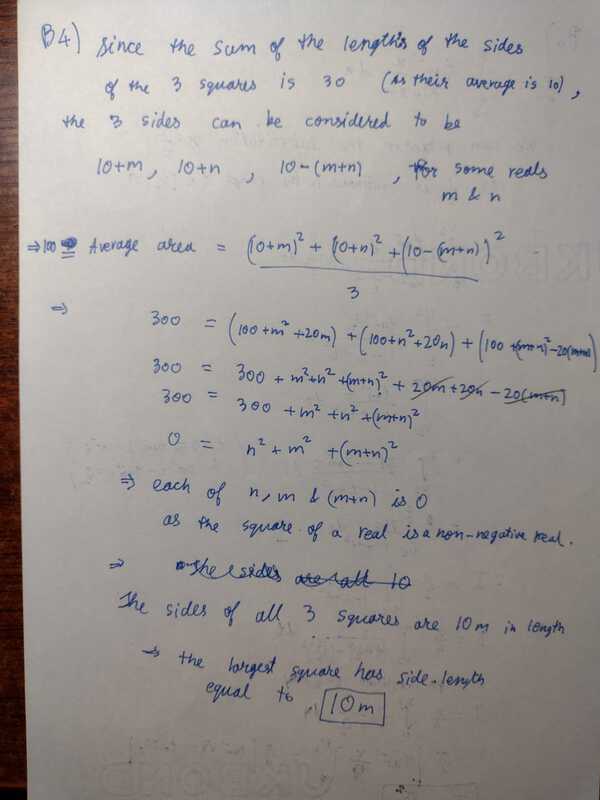 B4) Since the sum of the lengths of the sides
of the 3 squares is 30 (As their average is 10),
the 3 sides can be considered to be
10+m, 10+n, 10-(m+n), for some reals
m & n
⇒ 100 = Average area = ((10+m)² + (10+n)² + (10-(m+n))²) / 3
⇒ 300 = (100+m²+20m) + (100+n²+20n) + (100+(m+n)²-20(m+n))
300 = 300 + m²+n²+(m+n)² + 20m + 20n - 20(m+n)
300 = 300 + m² + n² + (m+n)²
0 = n² + m² + (m+n)²
⇒ each of n, m & (m+n) is 0
as the square of a real is a non-negative real.
⇒ The sides are all 10
The sides of all 3 squares are 10m in length
→ the largest square has side-length
equal to 10m
UKBOND